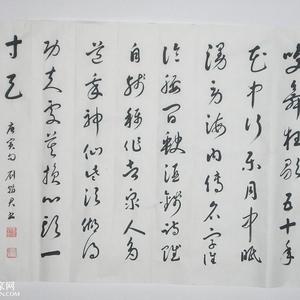 笑舞狂歌五十年
花中行乐月中眠
漫劳海内传名字谁
论腰间缺酒钱诗赋
自惭称作者众人多
道我神仙些须做得
功夫处莫损心头一
寸天
庚寅
家网